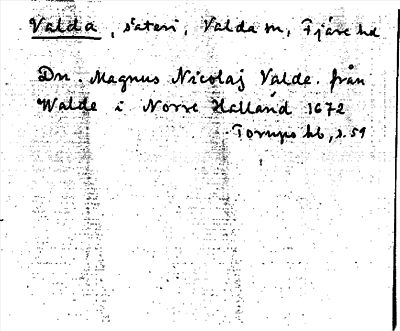 Valda, säteri, Valda sn, Fjäre hd
Dn. Magnus Nicolaj Valde. från
Walde i Norre Halland 1672
Torups kb, s. 59